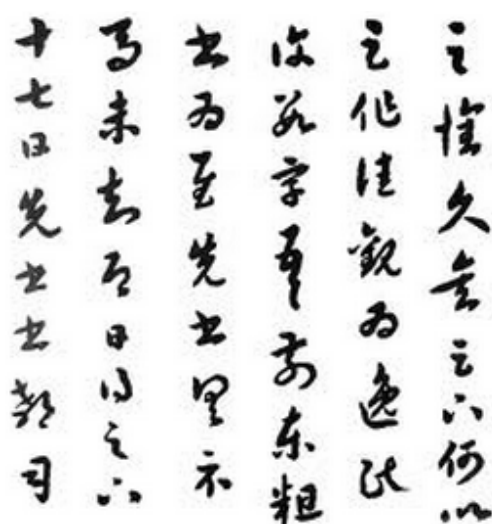 十七日先書書郗司
馬未去即日得足下
書為慰先書具示
復數字吾前東粗
足作佳觀為逸民
之懷久矣足下何以